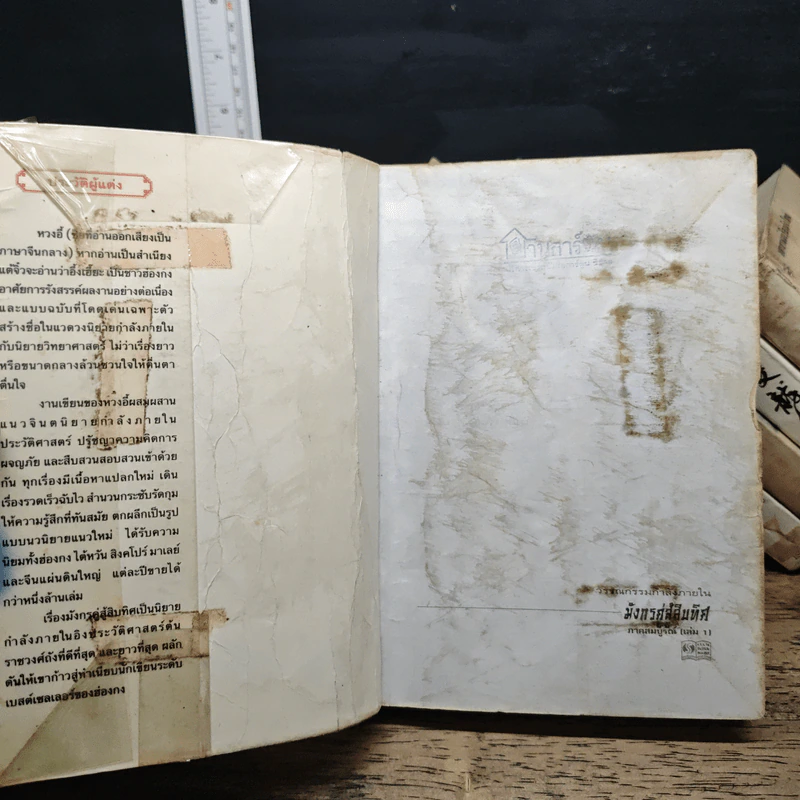 ประวัติผู้แต่ง
หวงอี้ (ชื่อที่อ่านออกเสียงเป็น
ภาษาจีนกลาง) หากอ่านเป็นสำเนียง
แต้จิ๋วจะอ่านว่าอึ้งเอี๊ยะ เป็นชาวฮ่องกง
อาศัยการรังสรรค์ผลงานอย่างต่อเนื่อง
และแบบฉบับที่โดดเด่นเฉพาะตัว
สร้างชื่อในแวดวงนิยายกำลังภายใน
กับนิยายวิทยาศาสตร์ ไม่ว่าเรื่องยาว
หรือขนาดกลางล้วนชวนใจให้ตื่นตา
ตื่นใจ
งานเขียนของหวงอี้ผสมผสาน
แนวจินตนิยายกำลังภายใน
ประวัติศาสตร์ ปรัชญาความคิดการ
ผจญภัย และสืบสวนสอบสวนเข้าด้วย
กัน ทุกเรื่องมีเนื้อหาแปลกใหม่ เดิน
เรื่องรวดเร็วฉับไว สำนวนกระชับรัดกุม
ให้ความรู้สึกที่ทันสมัย ตกผลึกเป็นรูป
แบบนวนิยายแนวใหม่ ได้รับความ
นิยมทั้งฮ่องกง ไต้หวัน สิงคโปร์ มาเลย์
และจีนแผ่นดินใหญ่ แต่ละปีขายได้
กว่าหนึ่งล้านเล่ม
เรื่องมังกรคู่สู้สิบทิศเป็นนิยาย
กำลังภายในอิงประวัติศาสตร์ต้น
ราชวงศ์ถังที่ดีที่สุด และยาวที่สุด ผลัก
ดันให้เขาก้าวสู่ทำเนียบนักเขียนระดับ
เบสต์เซลเลอร์ของฮ่องกง
วรรณกรรมกำลังภายใน
มังกรคู่สู้สิบทิศ
ภาคสมบูรณ์ (เล่ม 1)